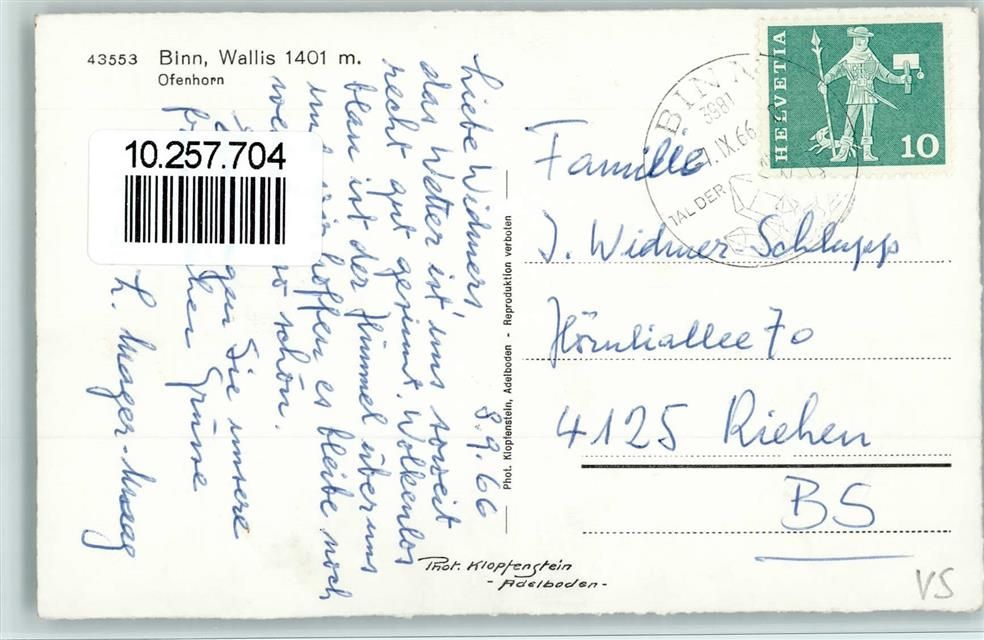 43553 Binn, Wallis 1401 m.
Ofenhorn
10.257.704
Liebe Widmers, 8.9.66
das Wetter ist uns soweit
recht gut gesinnt. Wolkenlos
blau ist der Himmel über uns
und wir hoffen es bleibe noch
so schön.
Sie unsere
Grüsse
L. Mager-Maag
Phot. Klopfenstein, Adelboden - Reproduktion verboten
Phot. Klopfenstein
- Adelboden -
BINN
3981
IX.66
TAL DER
HELVETIA
10
Familie
J. Widmer-Schlupp
Hörnliallee 70
4125 Riehen
BS
VS